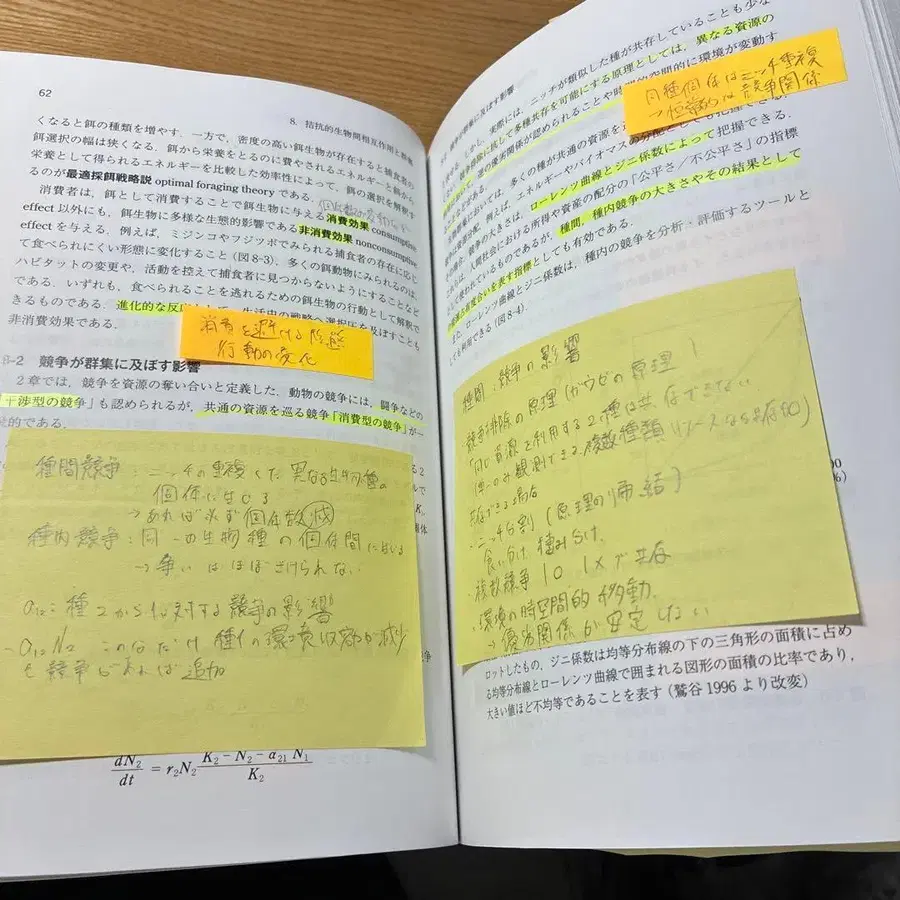 62
8. 拮抗的生物間相互作用と群集
くなると餌の種類を増やす．一方で，密度の高い餌生物が存在すると捕食者の
餌選択の幅は狭くなる．餌から栄養をとるのに費やされるエネルギーと餌から
栄養として得られるエネルギーを比較した効率性によって，餌の選択を解釈す
るのが最適採餌戦略説 optimal foraging theory である．
消費者は，餌として消費することで餌生物に与える消費効果 consumptive
effect 以外にも，餌生物に多様な生態的影響である非消費効果 nonconsumptive
effect を与える．例えば，ミジンコやフジツボでみられる捕食者の存在に応じ
て食べられにくい形態に変化すること（図8-3），多くの餌動物にみられるのは，
ハビタットの変更や，活動を控えて捕食者に見つからないようにすることなど
である．いずれも，食べられることを逃れるための餌生物の行動として解釈で
きるものである．進化的な反応
生活史の戦略へ選択圧を及ぼすことも
非消費効果である．
消費を避ける形態
行動の変化
8-2 競争が群集に及ぼす影響
2章では，競争を資源の奪い合いと定義した．動物の競争には，闘争などの
「干渉型の競争」も認められるが，共通の資源を巡る競争「消費型の競争」が一
般的である．
種間競争：ニッチの重複した異なる生物種の
個体に生じる
→あれば必ず個体数減
種内競争：同一の生物種の個体間にはいる
→争いはほぼさけられない
a12：種2から1に対する競争の影響
a12 N2 このなだけ種1の環境収容力が減少
も競争があれば追加
dN2/dt = r2N2 (K2 − N2 − α21 N1)/K2
競争が群集に及ぼす影響
実際には，ニッチが類似した種が共存していることも少な
しかし，競争排除に抗して多種共存を可能にする原理としては，異なる資源の
種の優劣関係が認められることや時間的空間的に環境が変動す
同種個体はニッチ重複
→恒常的な競争関係
多くの種が共通の資源を
エネルギーやバイオマスの分配
競争の大きさは，ローレンツ曲線とジニ係数によって把握できる．
人間社会における所得や資産の配分の「公平さ／不公平さ」の指標
として使われているものであるが，種間，種内競争の大きさやその結果として
度合いを表す指標としても有効である．
ローレンツ曲線とジニ係数は，種内の競争を分析・評価するツールと
しても利用できる（図8-4）．
種間競争の影響
競争排除の原理（ガウゼの原理）
「同じ資源を利用する2種は共存できない」
共存できる場合
・ニッチ分割（原理の帰結）
食い分け 棲み分け
・複数競争
・環境の時空間的移動
→優劣関係が安定しない
ロットしたもの，ジニ係数は均等分布線の下の三角形の面積に占め
る均等分布線とローレンツ曲線で囲まれる図形の面積の比率であり，
大きい値ほど不均等であることを表す（鷲谷 1996 より改変）